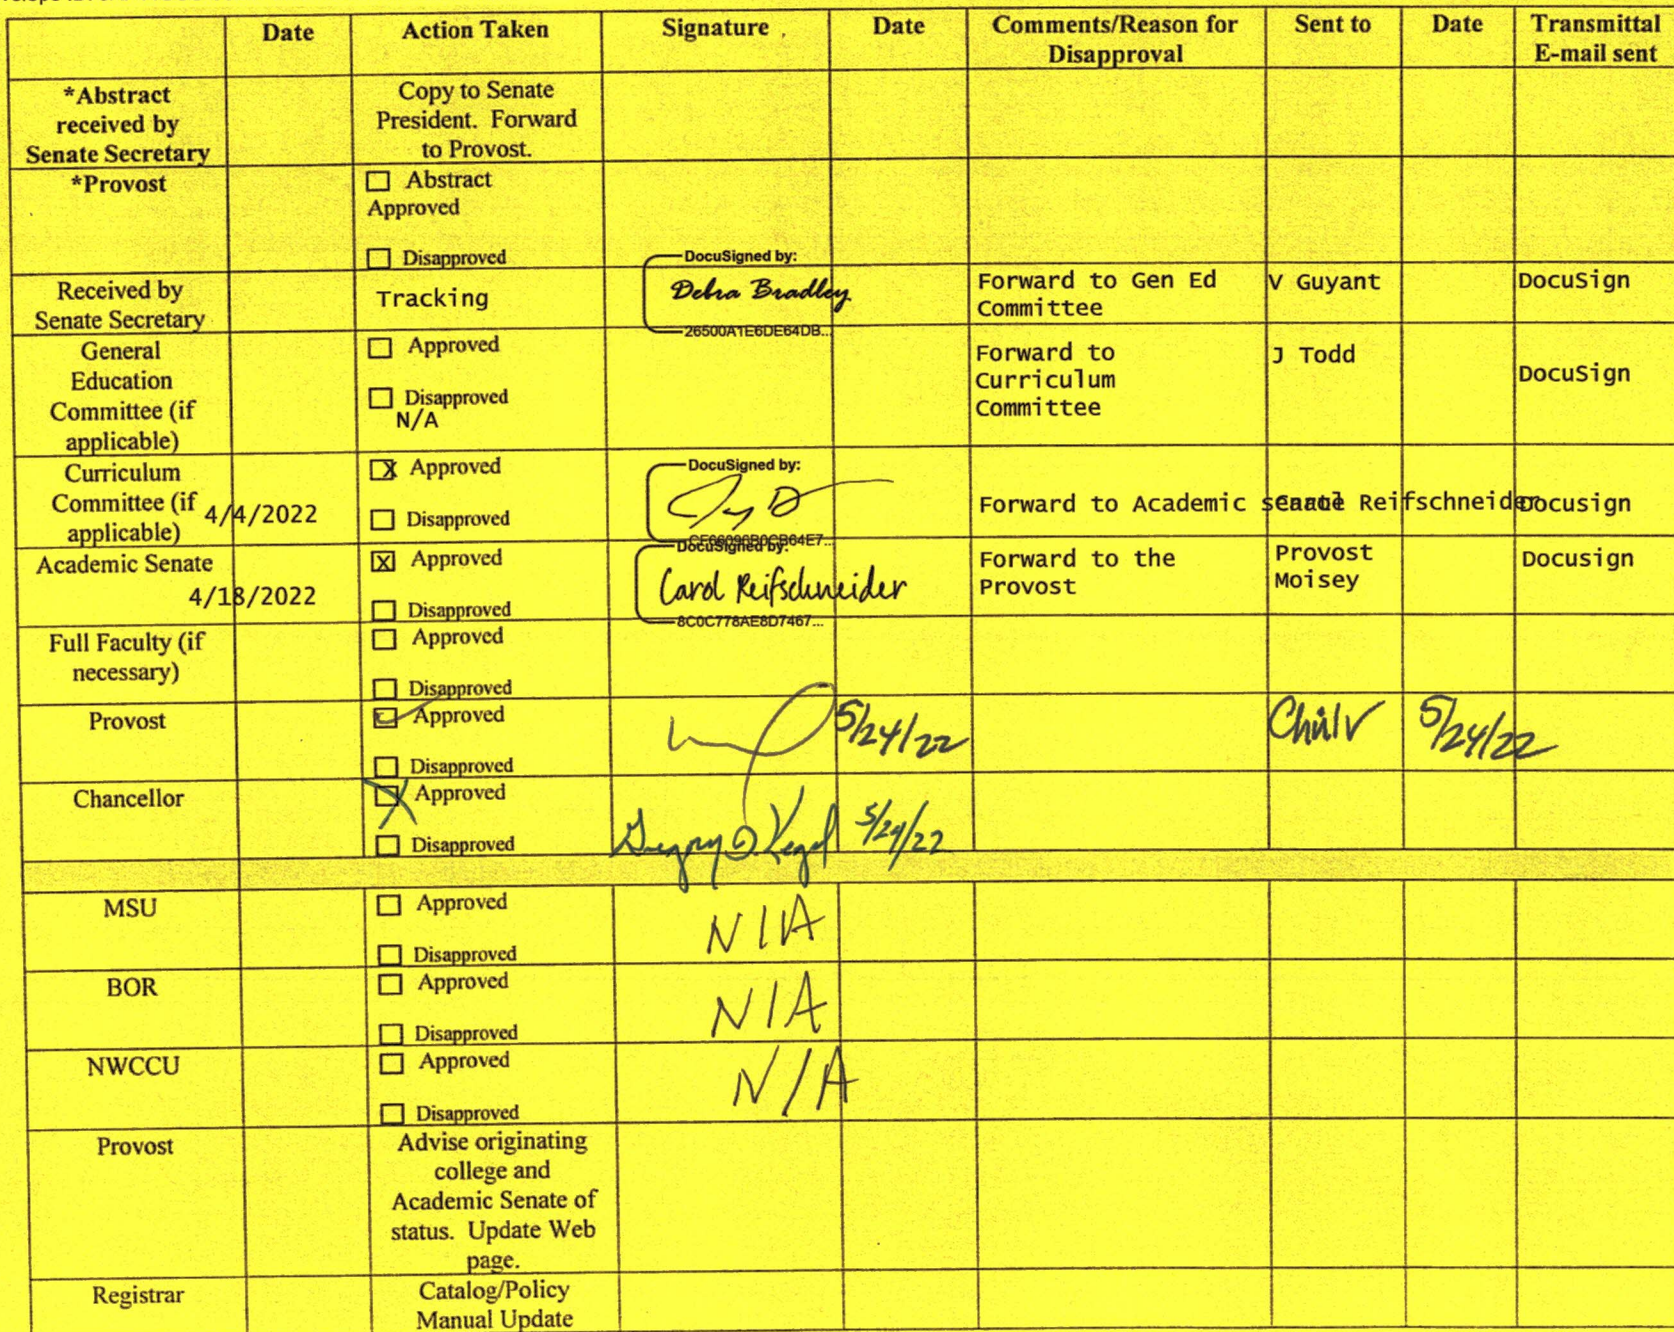 Date Action Taken Signature Date Comments/Reason for Sent to Date Transmittal
Disapproval E-mail sent
*Abstract
received by
Senate Secretary
Copy to Senate
President. Forward
to Provost.
*Provost
Abstract
Approved
Disapproved
Received by
Senate Secretary
Tracking
DocuSigned by:
Debra Bradley
26500A1E6DE64DB...
Forward to Gen Ed
Committee
V Guyant
DocuSign
General
Education
Committee (if
applicable)
Approved
Disapproved
N/A
Forward to
Curriculum
Committee
J Todd
DocuSign
Curriculum
Committee (if
applicable)
4/4/2022
X Approved
Disapproved
DocuSigned by:
Forward to Academic senate
Carol Reifschneider
Docusign
Academic Senate
4/18/2022
X Approved
Disapproved
DocuSigned by:
Carol Reifschneider
8C0C778AE8D7467...
Forward to the
Provost
Provost
Moisey
Docusign
Full Faculty (if
necessary)
Approved
Disapproved
Provost
Approved
Disapproved
5/24/22
5/24/22
Chancellor
Approved
Disapproved
Gregory D. Kegel
5/24/22
MSU
Approved
Disapproved
N/A
BOR
Approved
Disapproved
N/A
NWCCU
Approved
Disapproved
N/A
Provost
Advise originating
college and
Academic Senate of
status. Update Web
page.
Registrar
Catalog/Policy
Manual Update